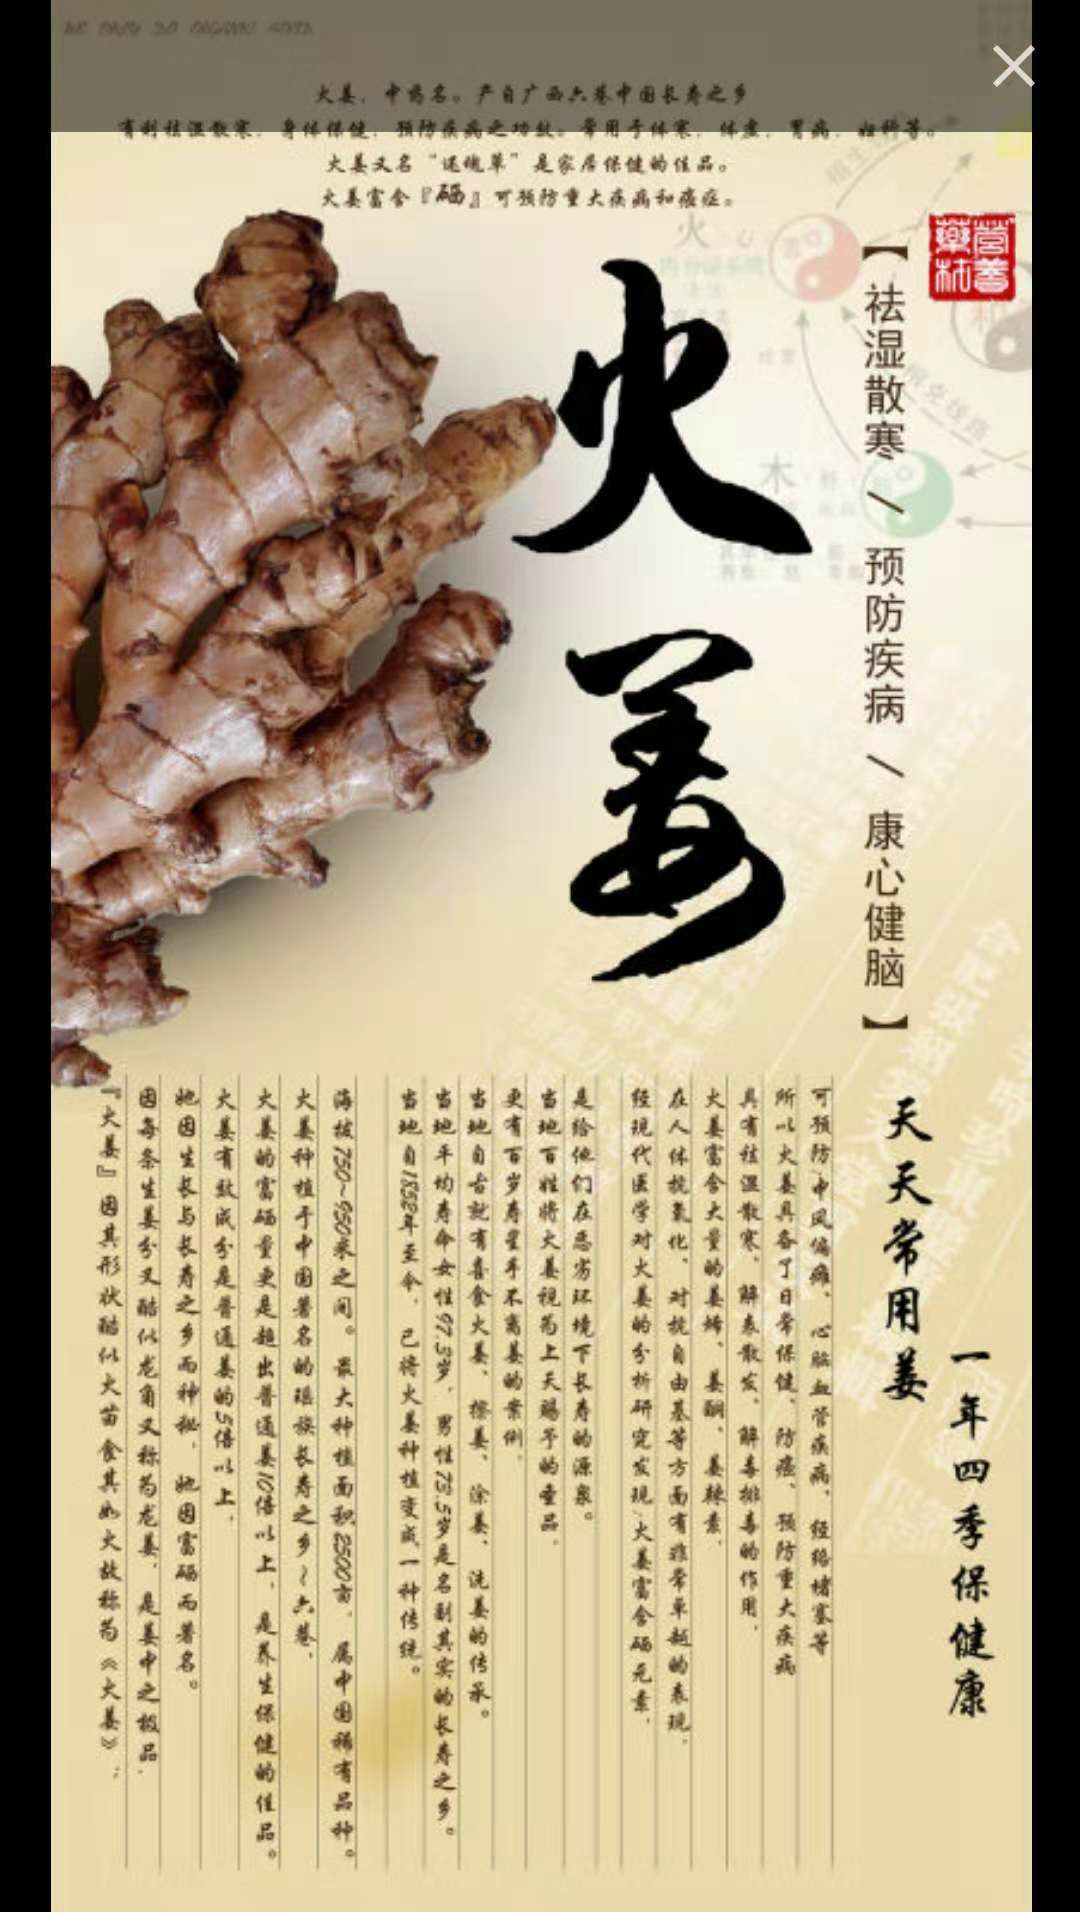 WE ONLY DO ORGANIC
火姜，中药名。产自广西六巷中国长寿之乡
有利祛湿散寒，身体保健，预防疾病之功效。常用于体寒，体虚，胃病，妇科等。
火姜又名“还魂草”是家居保健的佳品。
火姜富含『硒』可预防重大疾病和癌症。
营养药材
【祛湿散寒 / 预防疾病 / 康心健脑】
火姜
天天常用姜
一年四季保健康
『火姜』因其形状酷似火苗食其如火故称为《火姜》；
因每条生姜分叉酷似龙角又称为龙姜，是姜中之极品.
她因生长与长寿之乡而神秘，她因富硒而著名。
火姜有效成分是普通姜的5倍以上，
火姜的富硒量更是超出普通姜10倍以上，是养生保健的佳品。
火姜种植于中国著名的瑶族长寿之乡~六巷，
海拔750~950米之间。最大种植面积2500亩，属中国稀有品种。
当地自1852年至今，已将火姜种植变成一种传统。
当地平均寿命女性97.5岁，男性75.5岁是名副其实的长寿之乡。
当地自古就有喜食火姜、擦姜、涂姜、洗姜的传承。
更有百岁寿星手不离姜的案例，
当地百姓将火姜视为上天赐予的圣品，
是给他们在恶劣环境下长寿的源泉。
经现代医学对火姜的分析研究发现，火姜富含硒元素，
在人体抗氧化、对抗自由基等方面有非常卓越的表现，
火姜富含大量的姜烯、姜酮、姜辣素，
具有祛湿散寒、解表散发、解毒排毒的作用，
所以火姜具备了日常保健、防癌、预防重大疾病
可预防 中风偏瘫、心脑血管疾病、经络堵塞等
火
木